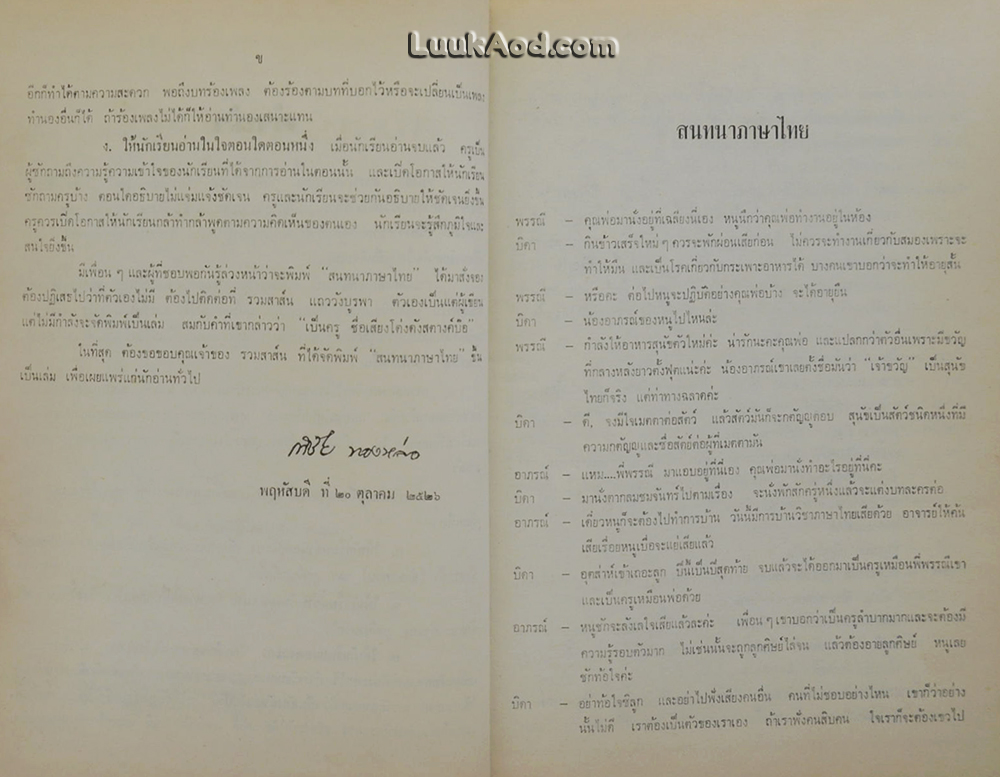 LuukAod.com
ข
อีกก็ทำได้ตามความสะดวก พอถึงบทร้องเพลง ต้องร้องตามบทที่บอกไว้หรือจะเปลี่ยนเป็นเพลง
ทำนองอื่นก็ได้ ถ้าร้องเพลงไม่ได้ก็ให้อ่านทำนองเสนาะแทน
ง. ให้นักเรียนอ่านในใจตอนใดตอนหนึ่ง เมื่อนักเรียนอ่านจบแล้ว ครูเป็น
ผู้ซักถามถึงความรู้ความเข้าใจของนักเรียนที่ได้จากการอ่านในตอนนั้น และเปิดโอกาสให้นักเรียน
ซักถามครูบ้าง ตอนใดอธิบายไม่แจ่มแจ้งชัดเจน ครูและนักเรียนจะช่วยกันอธิบายให้ชัดเจนยิ่งขึ้น
ครูควรเปิดโอกาสให้นักเรียนกล้าทำกล้าพูดตามความคิดเห็นของตนเอง นักเรียนจะรู้สึกภูมิใจและ
สนใจยิ่งขึ้น
มีเพื่อน ๆ และผู้ที่ชอบพอกันรู้ล่วงหน้าว่าจะพิมพ์ “สนทนาภาษาไทย” ได้มาสั่งจอง
ต้องปฏิเสธไปว่าที่ตัวเองไม่มี ต้องไปติดต่อที่ รวมสาส์น แถววังบูรพา ตัวเองเป็นแต่ผู้เขียน
แต่ไม่มีกำลังจะจัดพิมพ์เป็นเล่ม สมกับคำที่เขากล่าวว่า “เป็นครู ชื่อเสียงโด่งดังสตางค์บ่อ”
ในที่สุด ต้องขอขอบคุณเจ้าของ รวมสาส์น ที่ได้จัดพิมพ์ “สนทนาภาษาไทย” ขึ้น
เป็นเล่ม เพื่อเผยแพร่แก่นักอ่านทั่วไป
กำชัย ทองหล่อ
พฤหัสบดี ที่ ๒๐ ตุลาคม ๒๕๒๖
สนทนาภาษาไทย
พรรณี – คุณพ่อมานั่งอยู่ที่เฉลียงนี่เอง หนูนึกว่าคุณพ่อทำงานอยู่ในห้อง
บิดา – กินข้าวเสร็จใหม่ ๆ ควรจะพักผ่อนเสียก่อน ไม่ควรจะทำงานเกี่ยวกับสมองเพราะจะ
ทำให้มึน และเป็นโรคเกี่ยวกับกระเพาะอาหารได้ บางคนเขาบอกว่าจะทำให้อายุสั้น
พรรณี – หรือคะ ต่อไปหนูจะปฏิบัติอย่างคุณพ่อบ้าง จะได้อายุยืน
บิดา – น้องอาภรณ์ของหนูไปไหนล่ะ
พรรณี – กำลังให้อาหารสุนัขตัวใหม่ค่ะ น่ารักนะคะคุณพ่อ และแปลกกว่าตัวอื่นเพราะมีขวัญ
ที่กลางหลังยาวตั้งฟุตแน่ะค่ะ น้องอาภรณ์เขาเลยตั้งชื่อมันว่า “เจ้าขวัญ” เป็นสุนัข
ไทยก็จริง แต่ท่าทางฉลาดค่ะ
บิดา – ดี, จงมีใจเมตตาต่อสัตว์ แล้วสัตว์มันก็จะกตัญญูตอบ สุนัขเป็นสัตว์ชนิดหนึ่งที่มี
ความกตัญญูและซื่อสัตย์ต่อผู้ที่เมตตามัน
อาภรณ์ – แหม....พี่พรรณี มาแอบอยู่ที่นี่เอง คุณพ่อมานั่งทำอะไรอยู่ที่นี่คะ
บิดา – มานั่งตากลมชมจันทร์ไปตามเรื่อง จะนั่งพักสักครู่หนึ่งแล้วจะแต่งบทละครต่อ
อาภรณ์ – เดี๋ยวหนูก็จะต้องไปทำการบ้าน วันนี้มีการบ้านวิชาภาษาไทยเสียด้วย อาจารย์ให้ค้น
เสียเรื่อยหนูเบื่อจะแย่เสียแล้ว
บิดา – อุตส่าห์เข้าเถอะลูก ปีนี้เป็นปีสุดท้าย จบแล้วจะได้ออกมาเป็นครูเหมือนพี่พรรณีเขา
และเป็นครูเหมือนพ่อด้วย
อาภรณ์ – หนูชักจะลังเลใจเสียแล้วละค่ะ เพื่อน ๆ เขาบอกว่าเป็นครูลำบากมากและจะต้องมี
ความรู้รอบตัวมาก ไม่เช่นนั้นจะถูกลูกศิษย์ไล่จน แล้วต้องอายลูกศิษย์ หนูเลย
ชักท้อใจค่ะ
บิดา – อย่าท้อใจซิลูก และอย่าไปฟังเสียงคนอื่น คนที่ไม่ชอบอย่างไหน เขาก็ว่าอย่าง
นั้นไม่ดี เราต้องเป็นตัวของเราเอง ถ้าเราฟังคนสิบคน ใจเราก็จะต้องเขวไป